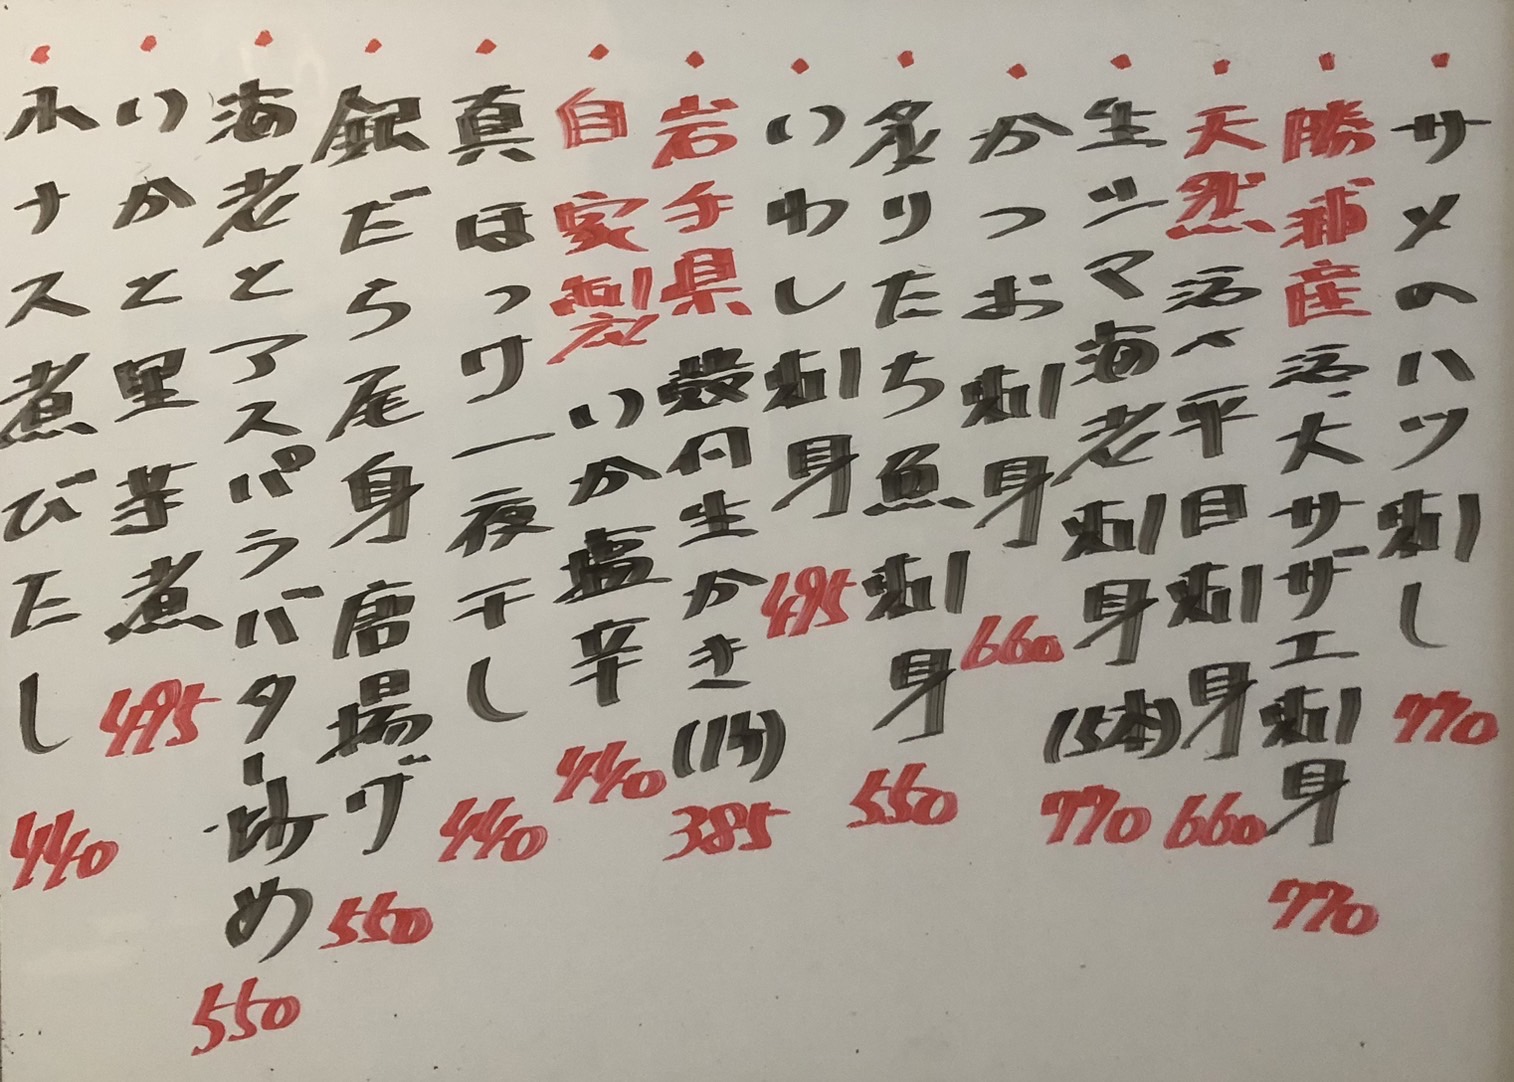 サメのハツ刺し 770
勝浦産 活大サザエ刺身 770
天然 活〆平目刺身 660
生シマ海老刺身(5本) 770
かつお刺身 660
炙りたち魚刺身 550
いわし刺身 495
岩手県 殻付生かき(1ヶ) 385
自家製 いか塩辛 440
真ほっけ一夜干し 440
銀だら尾身唐揚げ 550
海老とアスパラバター炒め 550
いかと里芋煮 495
水ナス煮びたし 440